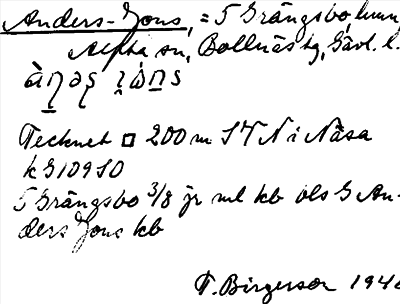 Anders-Jons, = 5 Grängsbo, hmn,
Alfta sn, Bollnäs tg, Gävl. l.
Tecknet □ 200 m SV N i Näsa
k G 109 SO
5 Grängsbo 3/8 jr ml kb ols G An-
ders Jons kb
T. Birgerson 1946